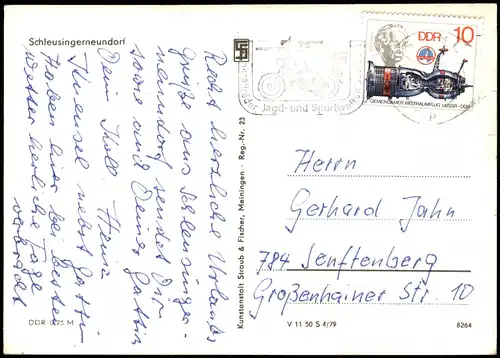 Schleusingerneundorf
Recht herzliche Urlaubs
grüße aus Schleusinger-
neundorf sendet Dir
sowie auch Deiner Gattin
Dein Koll. Heinz
nebst Gattin
Haben hier bei bestem
Wetter herrliche Tage
verbracht
DDR 0,25 M
Kunstanstalt Straub & Fischer, Meiningen - Reg.-Nr. 23
Jagd- und Sportwaffen
DDR 10
GEMEINSAMER WELTRAUMFLUG UdSSR-DDR
Herrn
Gerhard Jahn
784 Senftenberg
Großenhainer Str. 10
V 11 50 S 4/79
8264